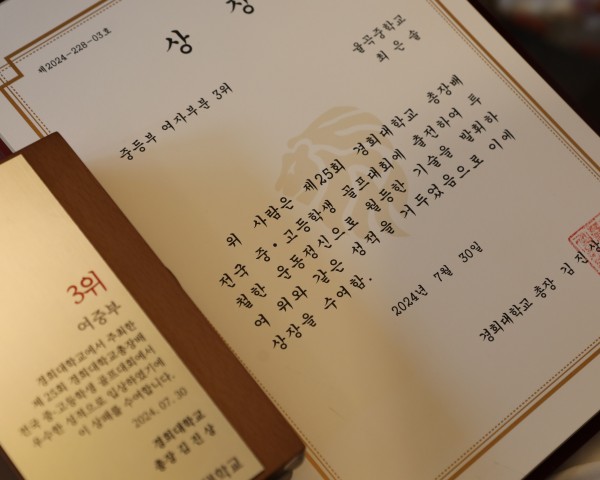 상 장
제2024-228-03호
율곡중학교
최 은 솔
중등부 여자부분 3위
위 사람은 제25회 경희대학교 총장배
전국 중·고등학생 골프대회에 출전하여 투
철한 운동정신으로 월등한 기술을 발휘하
여 위와 같은 성적을 거두었음으로 이에
상장을 수여함.
2024년 7월 30일
경희대학교 총장 김 진 상
3위
여중부
경희대학교에서 주최한
제 25회 경희대학교총장배
전국 중.고등학생 골프대회에서
우수한 성적으로 입상하였기에
이 상패를 수여합니다.
2024. 07. 30
경희대학교
총장 김 진 상
대학교